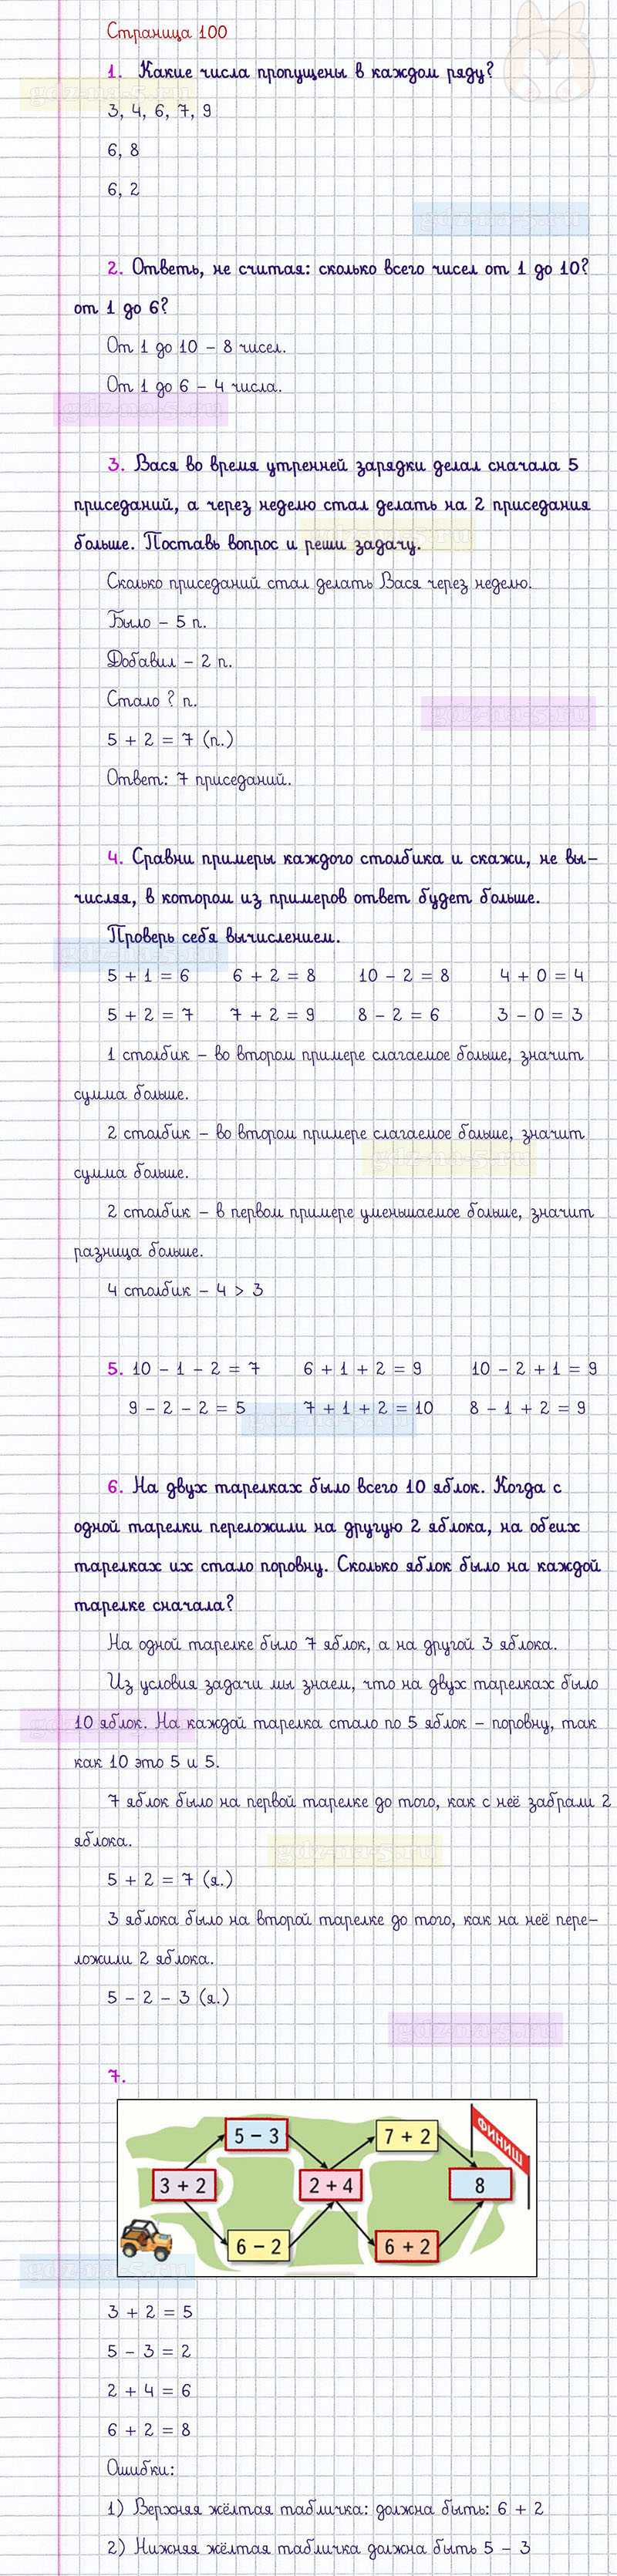 Страница 100
1. Какие числа пропущены в каждом ряду?
gdz-na-5.ru
3, 4, 6, 7, 9
6, 8
6, 2
gdz-na-5.ru
2. Ответь, не считая: сколько всего чисел от 1 до 10?
от 1 до 6?
От 1 до 10 – 8 чисел.
От 1 до 6 – 4 числа.
gdz-na-5.ru
3. Вася во время утренней зарядки делал сначала 5
приседаний, а через неделю стал делать на 2 приседания
больше. Поставь вопрос и реши задачу.
gdz-na-5.ru
Сколько приседаний стал делать Вася через неделю.
Было – 5 п.
Добавил – 2 п.
Стало ? п.
gdz-na-5.ru
5 + 2 = 7 (п.)
Ответ: 7 приседаний.
4. Сравни примеры каждого столбика и скажи, не вы-
числяя, в котором из примеров ответ будет больше.
Проверь себя вычислением.
gdz-na-5.ru
5 + 1 = 6 6 + 2 = 8 10 – 2 = 8 4 + 0 = 4
5 + 2 = 7 7 + 2 = 9 8 – 2 = 6 3 – 0 = 3
1 столбик – во втором примере слагаемое больше, значит
сумма больше.
2 столбик – во втором примере слагаемое больше, значит
gdz-na-5.ru
сумма больше.
2 столбик – в первом примере уменьшаемое больше, значит
разница больше.
4 столбик – 4 > 3
5. 10 – 1 – 2 = 7 6 + 1 + 2 = 9 10 – 2 + 1 = 9
9 – 2 – 2 = 5 7 + 1 + 2 = 10 8 – 1 + 2 = 9
gdz-na-5.ru
6. На двух тарелках было всего 10 яблок. Когда с
одной тарелки переложили на другую 2 яблока, на обеих
тарелках их стало поровну. Сколько яблок было на каждой
тарелке сначала?
На одной тарелке было 7 яблок, а на другой 3 яблока.
Из условия задачи мы знаем, что на двух тарелках было
10 яблок. На каждой тарелка стало по 5 яблок – поровну, так
gdz-na-5.ru
как 10 это 5 и 5.
7 яблок было на первой тарелке до того, как с неё забрали 2
яблока.
gdz-na-5.ru
5 + 2 = 7 (я.)
3 яблока было на второй тарелке до того, как на неё пере-
ложили 2 яблока.
5 – 2 – 3 (я.)
gdz-na-5.ru
7.
5 – 3 7 + 2 ФИНИШ
3 + 2 2 + 4 8
6 – 2 6 + 2
gdz-na-5.ru
3 + 2 = 5
5 – 3 = 2
2 + 4 = 6
6 + 2 = 8
Ошибки:
1) Верхняя жёлтая табличка: должна быть: 6 + 2
2) Нижняя жёлтая табличка должна быть 5 – 3